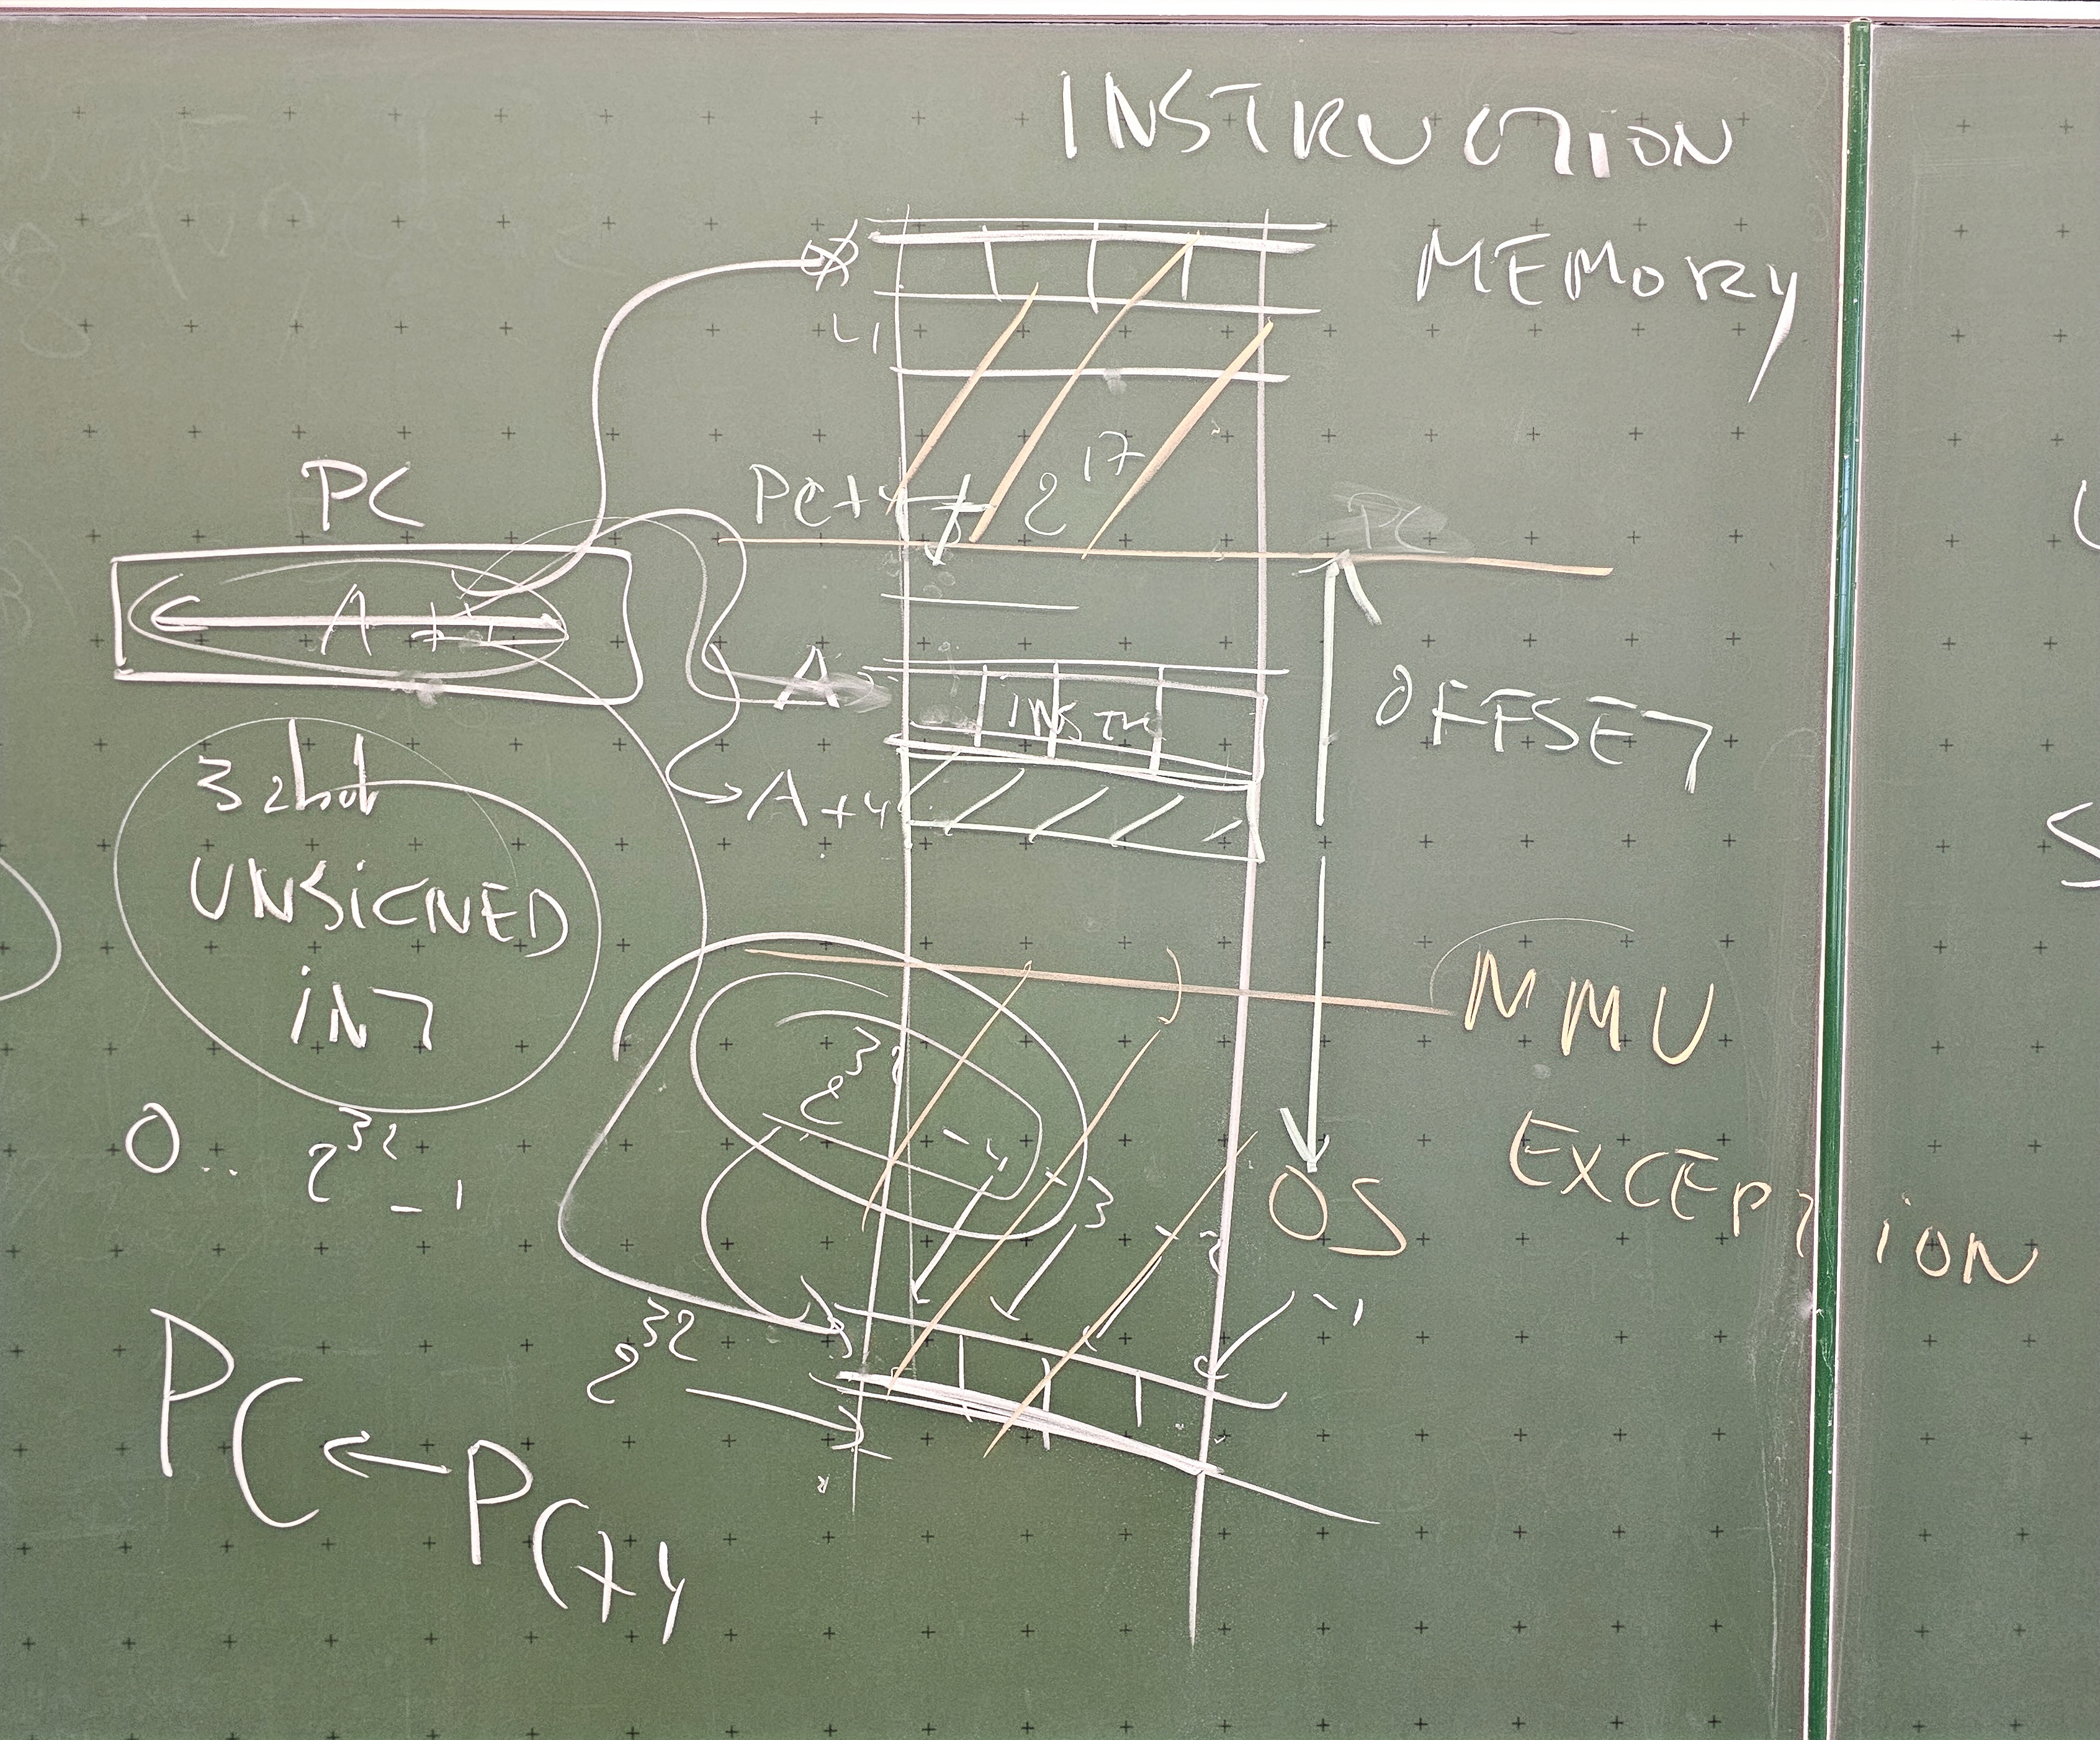 INSTRUCTION
MEMORY
4
PC
PC+4
2^17
PC
A+4
A
INSTR
OFFSET
A+4
32 bit
UNSIGNED
INT
MMU
EXCEPTION
2^32 -4
-3
OS
0.. 2^32 -1
-2
-1
2^32
PC ← PC+4